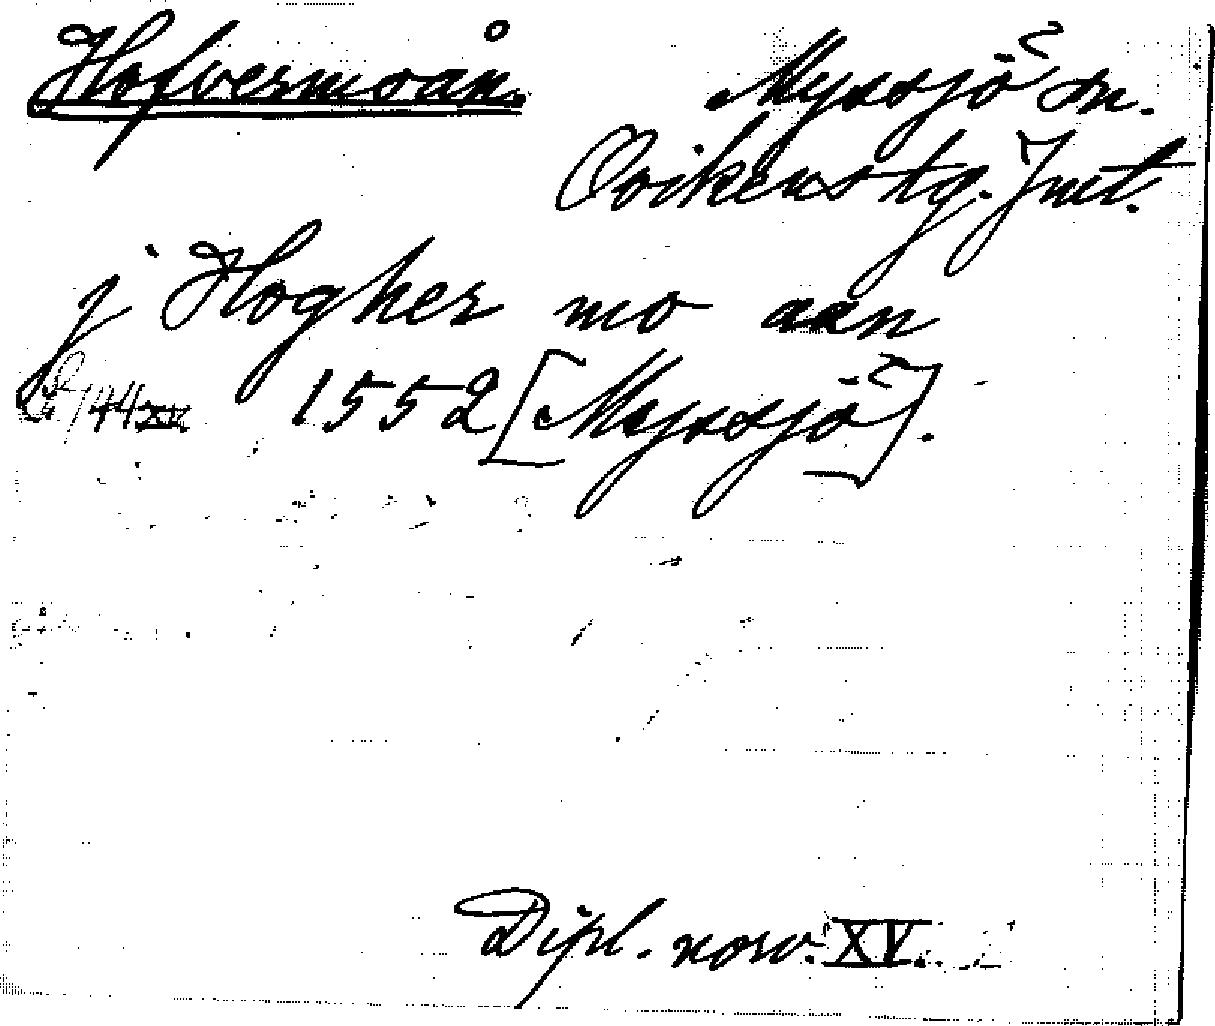 Hofvermoån. Myssjö? sn.
Ovikens tg. Jmt.
j Hogher mo aan
1552 [Myssjö?].
Dipl. norv. XV.